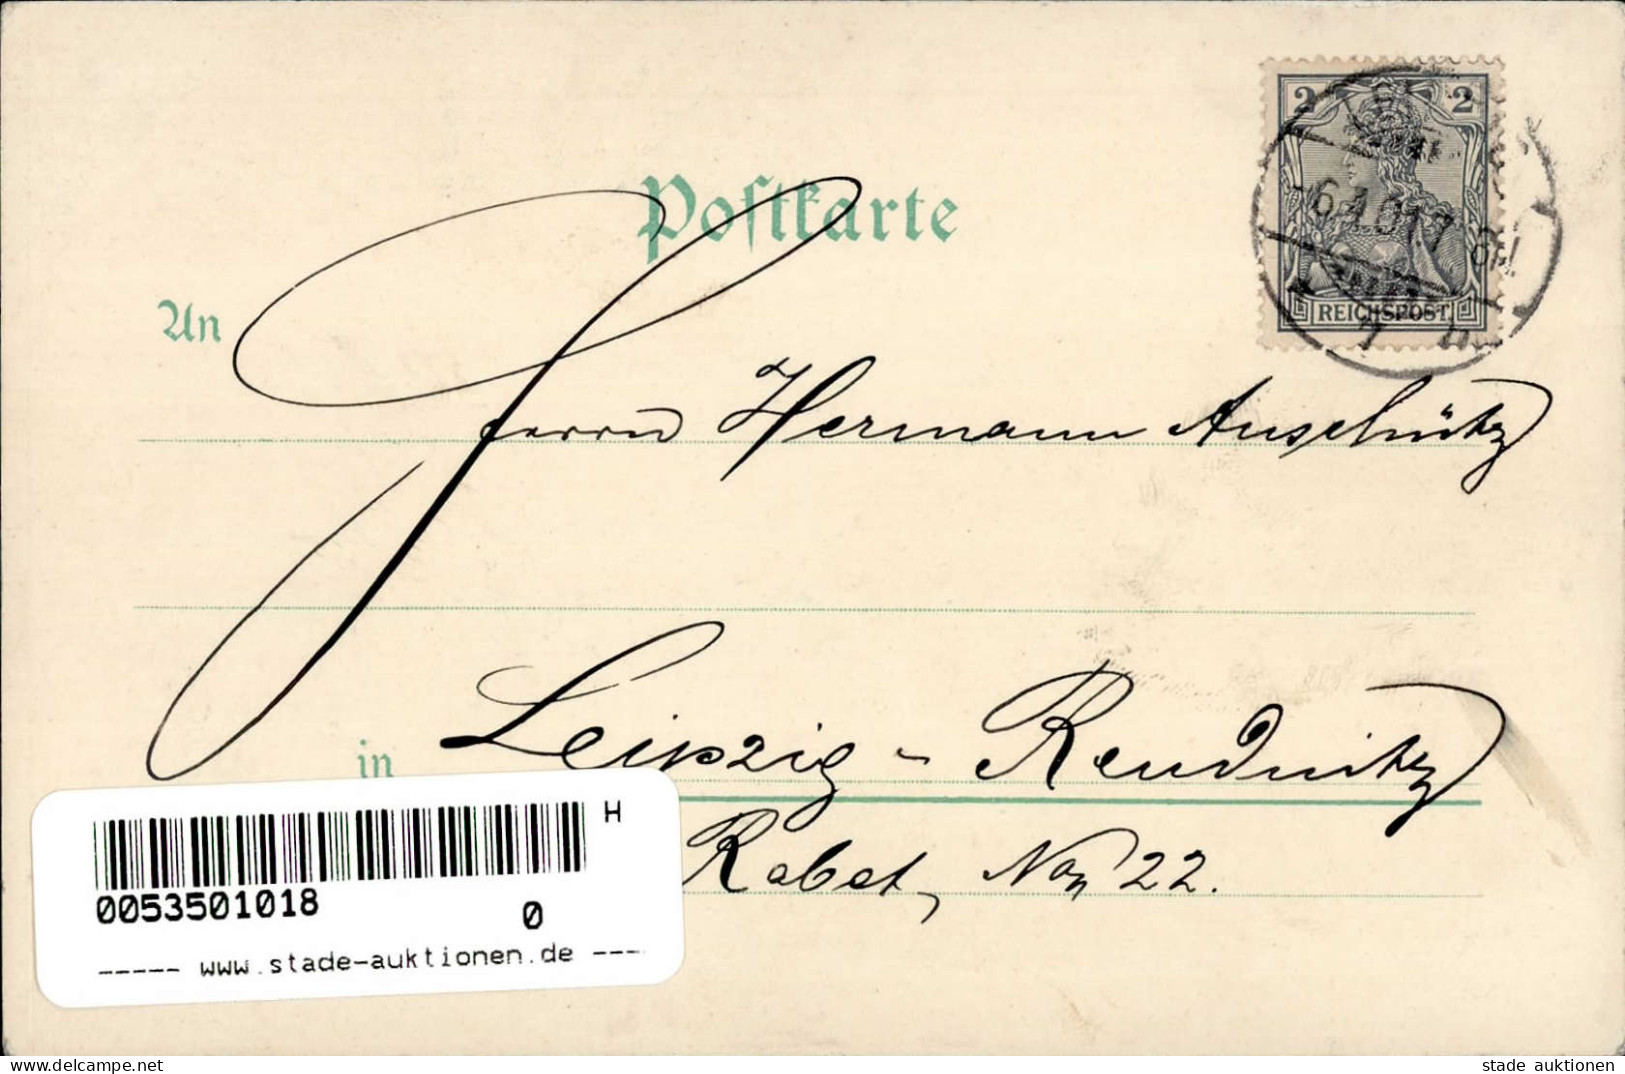 Postkarte
2 2
-6.1.01.7-8N.
REICHSPOST
An
Herrn Hermann Anschütz
in Leipzig - Reudnitz
Rabet, No 22.
H
0053501018
0
----- www.stade-auktionen.de ----
www.delcampe.net
stade auktionen